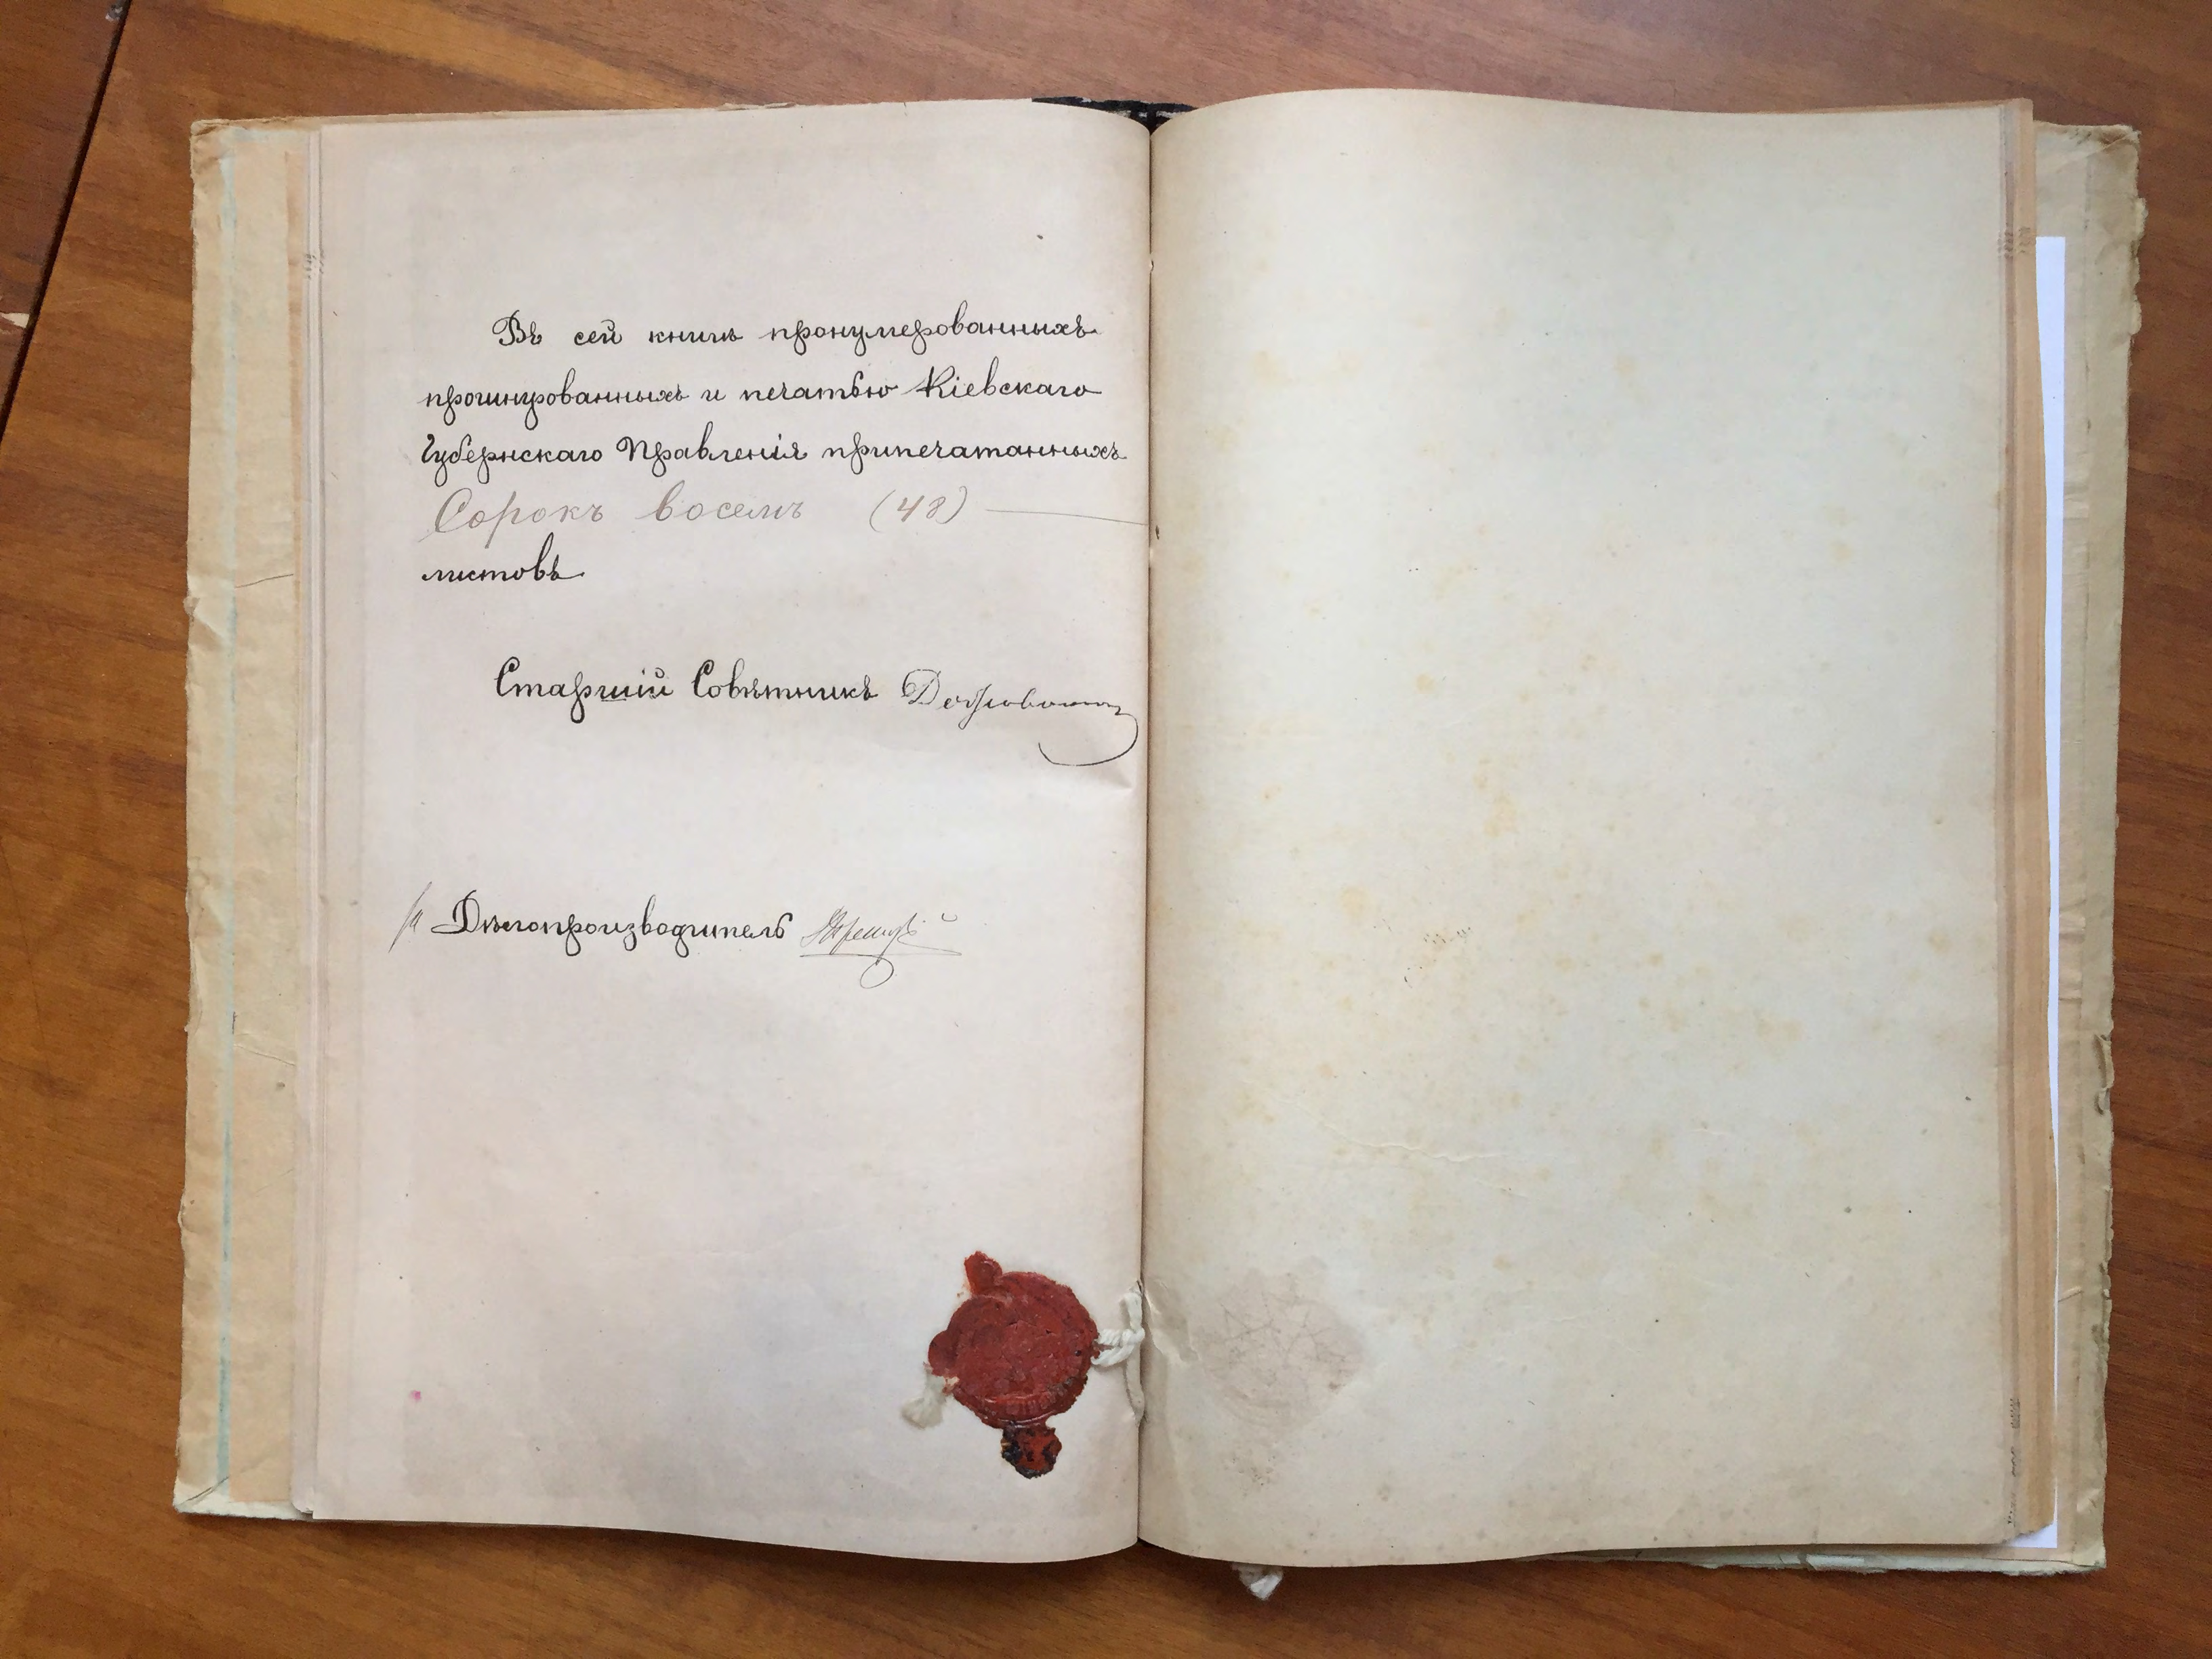 Въ сей книгѣ пронумерованныхъ
прошнурованныхъ и печатью Кіевскаго
Губернскаго Правленія припечатанныхъ
Сорокъ восемь (48)
листовъ
Старшій Совѣтникъ
Дѣлопроизводитель